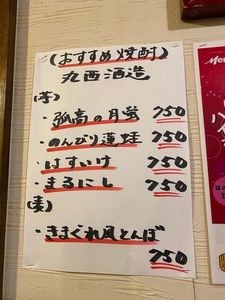 (おすすめ焼酎)
丸西酒造
(芋)
・孤高の月蛍 750
・のんびり蓮蛙 750
・はすいけ 750
・まるにし 750
(麦)
・きまぐれ風とんぼ
750
Mer